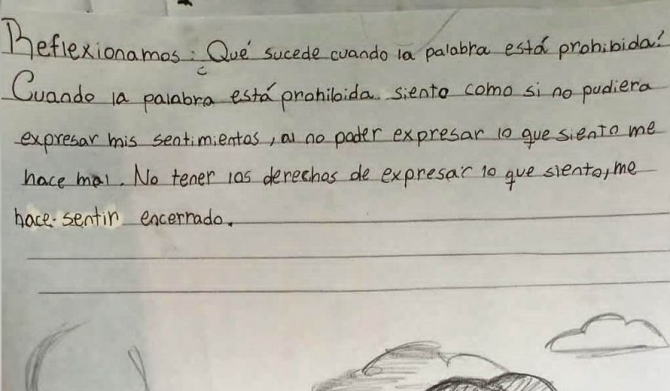 Reflexionamos: ¿Qué sucede cuando la palabra está prohibida?
Cuando la palabra está prohibida siento como si no pudiera
expresar mis sentimientos, al no poder expresar lo que siento me
hace mal. No tener los derechos de expresar lo que siento, me
hace sentir encerrado.